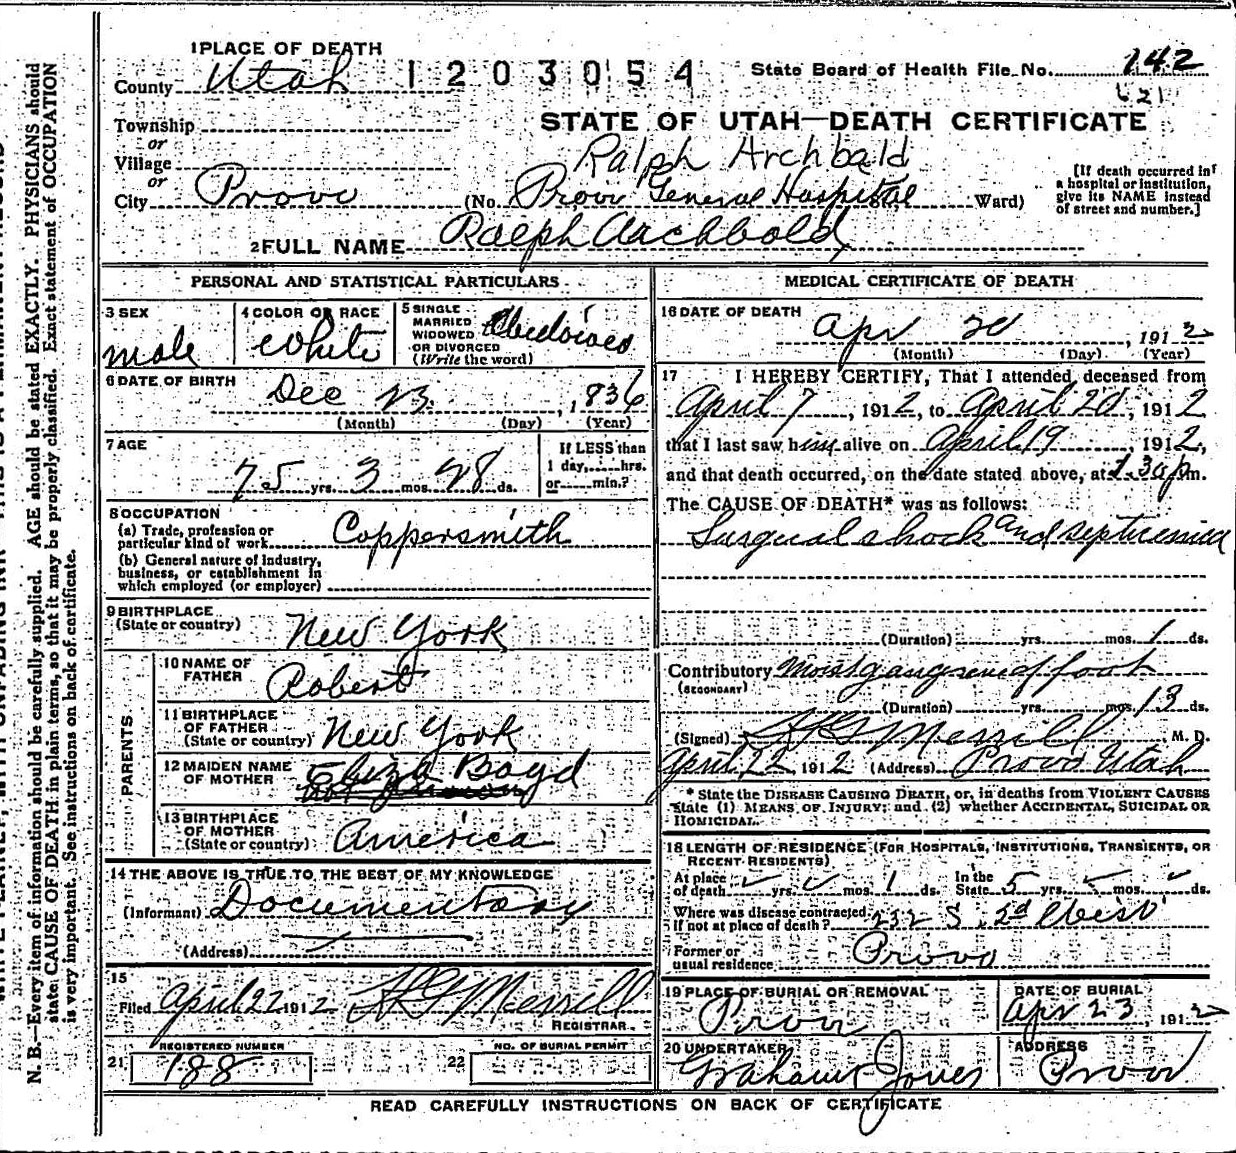 1 PLACE OF DEATH
County Utah 1203054 State Board of Health File No. 142
621
Township
or
Village
or
City Provo
STATE OF UTAH—DEATH CERTIFICATE
Ralph Archbald
(No. Provo General Hospital St. Ward)
[If death occurred in a hospital or institution, give its NAME instead of street and number.]
2 FULL NAME Ralph Archbold
PERSONAL AND STATISTICAL PARTICULARS
3 SEX
male
4 COLOR OR RACE
White
5 SINGLE
MARRIED
WIDOWED
OR DIVORCED
(Write the word)
6 DATE OF BIRTH
Dec 23, 1836
(Month) (Day) (Year)
7 AGE
75 yrs. 3 mos. 28 ds.
If LESS than
1 day, hrs.
or min.?
8 OCCUPATION
(a) Trade, profession or
particular kind of work Coppersmith
(b) General nature of industry,
business, or establishment in
which employed (or employer)
9 BIRTHPLACE
(State or country) New York
PARENTS
10 NAME OF
FATHER Robert
11 BIRTHPLACE
OF FATHER
(State or country) New York
12 MAIDEN NAME
OF MOTHER Eliza Boyd
not known
13 BIRTHPLACE
OF MOTHER
(State or country) America
14 THE ABOVE IS TRUE TO THE BEST OF MY KNOWLEDGE
(Informant) Documentary
(Address)
15
Filed April 22 1912 H G Merrill
REGISTRAR.
REGISTERED NUMBER
21 188
NO. OF BURIAL PERMIT
22
MEDICAL CERTIFICATE OF DEATH
16 DATE OF DEATH
Apr 20, 1912
(Month) (Day) (Year)
17 I HEREBY CERTIFY, That I attended deceased from
April 7, 1912, to April 20, 1912
that I last saw him alive on April 19, 1912,
and that death occurred, on the date stated above, at 1.30 p m.
The CAUSE OF DEATH* was as follows:
Surgical shock and septicemia
(Duration) yrs. mos. 1 ds.
Contributory Moist gangrene of foot
(SECONDARY)
(Duration) yrs. mos. 13 ds.
(Signed) H G Merrill M. D.
April 22 1912 (Address) Provo Utah
* State the DISEASE CAUSING DEATH, or, in deaths from VIOLENT CAUSES
state (1) MEANS OF INJURY; and (2) whether ACCIDENTAL, SUICIDAL OR
HOMICIDAL.
18 LENGTH OF RESIDENCE (FOR HOSPITALS, INSTITUTIONS, TRANSIENTS, OR
RECENT RESIDENTS)
At place
of death yrs. mos. 1 ds.
In the
State 5 yrs. mos. ds.
Where was disease contracted
if not at place of death? 232 S. 2d West
Former or
usual residence Provo
19 PLACE OF BURIAL OR REMOVAL
Provo
DATE OF BURIAL
Apr 23, 1912
20 UNDERTAKER
Graham Jones
ADDRESS
Provo
READ CAREFULLY INSTRUCTIONS ON BACK OF CERTIFICATE
N. B.—Every item of information should be carefully supplied. AGE should be stated EXACTLY. PHYSICIANS should
state CAUSE OF DEATH in plain terms, so that it may be properly classified. Exact statement of OCCUPATION
is very important. See instructions on back of certificate.